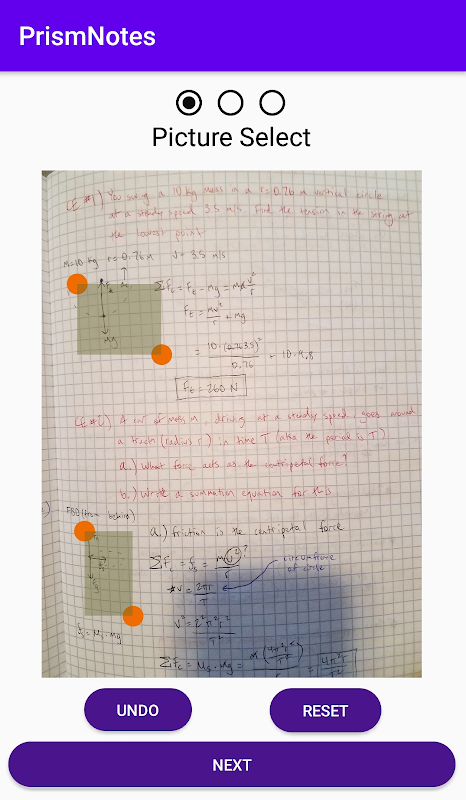 PrismNotes
Picture Select
CE #1) You swing a 10 kg mass in a r=0.76 m vertical circle
at a steady speed 3.5 m/s. Find the tension in the string at
the lowest point
M=10 kg r=0.76 m v=3.5 m/s
ΣFc = Ft - mg = m v²/r
Ft = mv²/r + mg
Mg
0.76
Ft = 260 N
CE #2) A car of mass m, driving at a steady speed, goes around
a track (radius r) in time T (aka the period is T)
a.) What force acts as the centripetal force?
b.) Write a summation equation for this
FBD (from behind)
a.) friction is the centripetal force
ΣFc = fs = mv²/r ?
circumference
of circle
*v = 2πr/T
v² = 2²π²r²/T²
fs = Ms · mg
ΣFc = Ms · mg =
UNDO
RESET
NEXT